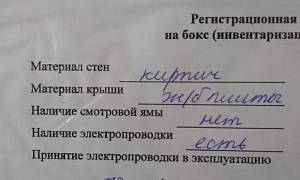 Регистрационная
на бокс (инвентаризац
Материал стен кирпич
Материал крыши ж/б плиты
Наличие смотровой ямы нет
Наличие электропроводки есть
Принятие электропроводки в эксплуатацию